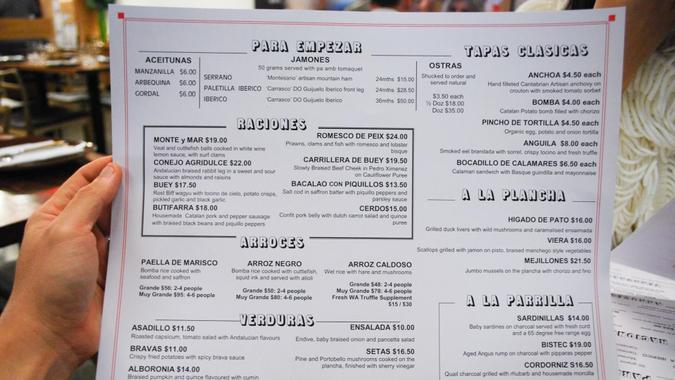 PARA EMPEZAR
ACEITUNAS
MANZANILLA $6.00
ARBEQUINA $6.00
GORDAL $6.00
JAMONES
50 grams served with pa amb tomaquet
SERRANO 'Montesano' artisan mountain ham 24mths $15.00
PALETILLA IBERICO 'Carrasco' DO Guijuelo Iberico front leg 24mths $28.50
IBERICO 'Carrasco' DO Guijuelo Iberico 36mths $50.00
OSTRAS
Shucked to order and
served natural
$3.50 each
½ Doz $18.00
Doz $35.00
TAPAS CLASICAS
ANCHOA $4.50 each
Hand filleted Cantabrian Artisan anchovy on
crouton with smoked tomato sorbet
BOMBA $4.00 each
Catalan Potato bomb filled with chorizo
PINCHO DE TORTILLA $4.50 each
Organic egg, potato and onion tortilla
ANGUILA $8.00 each
Smoked eel brandada with sorrel, crispy tocino and fresh truffle
BOCADILLO DE CALAMARES $6.50 each
Calamari sandwich with Basque guindilla and mayonnaise
RACIONES
MONTE y MAR $19.00
Veal and cuttlefish balls cooked in white wine
lemon sauce, with surf clams
CONEJO AGRIDULCE $22.00
Andalucian braised rabbit leg in a sweet and sour
sauce with almonds and raisins
BUEY $17.50
Rost Biff wagyu with tocino de cielo, potato crisps,
pickled garlic and black garlic
BUTIFARRA $18.00
Housemade Catalan pork and pepper sausage
with braised black beans and piquillo peppers
ROMESCO DE PEIX $24.00
Prawns, clams and fish with romesco and lobster
bisque
CARRILLERA DE BUEY $19.50
Slowly Braised Beef Cheek in Pedro Ximenez
on Cauliflower Puree
BACALAO CON PIQUILLOS $13.50
Salt cod in saffron batter with piquillo peppers and
parsley sauce
CERDO $15.00
Confit pork belly with dutch carrot salad and quince
puree
A LA PLANCHA
HIGADO DE PATO $16.00
Grilled duck livers with wild mushrooms and caramelised ensaimada
VIERA $16.00
Scallops grilled with jamon on pisto, braised manchego style vegetables
MEJILLONES $21.50
Jumbo mussels on the plancha with chorizo and fino
ARROCES
PAELLA DE MARISCO
Bomba rice cooked with
seafood and saffron
Grande $56: 2-4 people
Muy Grande $95: 4-6 people
ARROZ NEGRO
Bomba rice cooked with cuttlefish,
squid ink and served with alioli
Grande $50: 2-4 people
Muy Grande $80: 4-6 people
ARROZ CALDOSO
Wet rice with hare and mushrooms
Grande $48: 2-4 people
Muy Grande $78: 4-6 people
Fresh WA Truffle Supplement
$15 / $30
VERDURAS
ASADILLO $11.50
Roasted capsicum, tomato salad with Andalucian flavours
BRAVAS $11.00
Crispy fried potatoes with spicy brava sauce
ALBORONIA $14.00
Braised pumpkin and quince flavoured with cumin
ENSALADA $10.00
Endive, baby braised onion and pancetta salad
SETAS $16.50
Pine and Portobello mushrooms cooked on the
plancha, finished with sherry vinegar
A LA PARRILLA
SARDINILLAS $14.00
Baby sardines on charcoal served with fresh curd
and a 65 degree free range egg
BISTEC $19.00
Aged Angus rump on charcoal with pipparas pepper
CORDORNIZ $16.50
Quail charcoal grilled with rhubarb and housemade morcilla